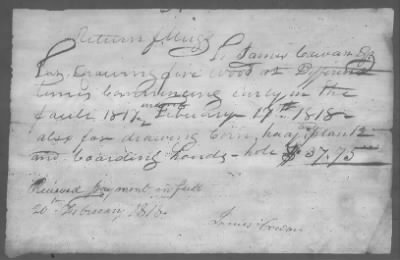 Return J Meigs
To James Cowan Dr
for Drawing fire wood at Different
times Commencing early in the
fall 1817 February 17th 1818
also for drawing Corn, hay, plank
and boarding hands - hole $37.75
Received payment in full
20th February 1818
James Cowan